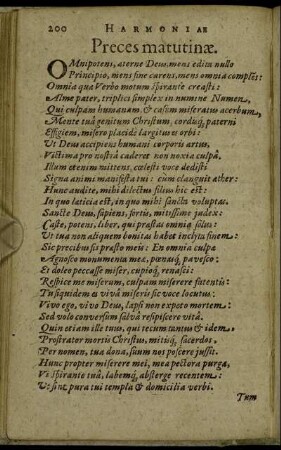 200 HARMONIAE
Preces matutinæ.
OMnipotens, æterne Deus, mens edita nullo
Principio, mens fine carens, mens omnia complens:
Omnia qua Verbo motum spirante creasti:
Alme pater, triplici simplex in numine Numen,
Qui culpam humanam & casum miseratus acerbum,
Mente tuâ genitum Christum, cordisq́, paterni
Effigiem, misero placidè largitus es orbi:
Ut Deus accipiens humani corporis artus,
Victima pro nostrâ caderet non noxia culpâ,
Illum etenim nittens, cœlesti voce dedisti
Signa animi manifesta tui: cum clanguit æther:
Hunc audite, mihi dilectus filius hic est:
In quo laticia est, in quo mihi sancta voluptas.
Sancte Deus, sapiens, fortis, mitissime judex:
Caste, potens, liber, qui præstas omnia solus:
Ut tua non aliquem bonitas habet inclyta finem:
Sic precibus sis præsto meis: En omnia culpæ
Agnosco monumenta meæ, pœnasq́, pavesco:
Et doleo peccasse miser, cupioq́, renasci:
Respice me miserum, culpam miserere fatentis:
Tu siquidem es vivâ miseris sic voce locutus:
Vivo ego, vivo Deus, lapsi non expeto mortem:
Sed volo conversum salvâ resipiscere vitâ.
Quin etiam ille tuus, qui tecum tantus & idem,
Prosirater mortis Christus, mitisq́, sacerdos,
Per nomen, tua dona, suum nos poscere jussit.
Hunc propter miserere mei, mea pectora purga,
Vi spirante tuâ, labemq́, absterge recentem:
Ut sint pura tui templa & domicilia verbi.
Tum